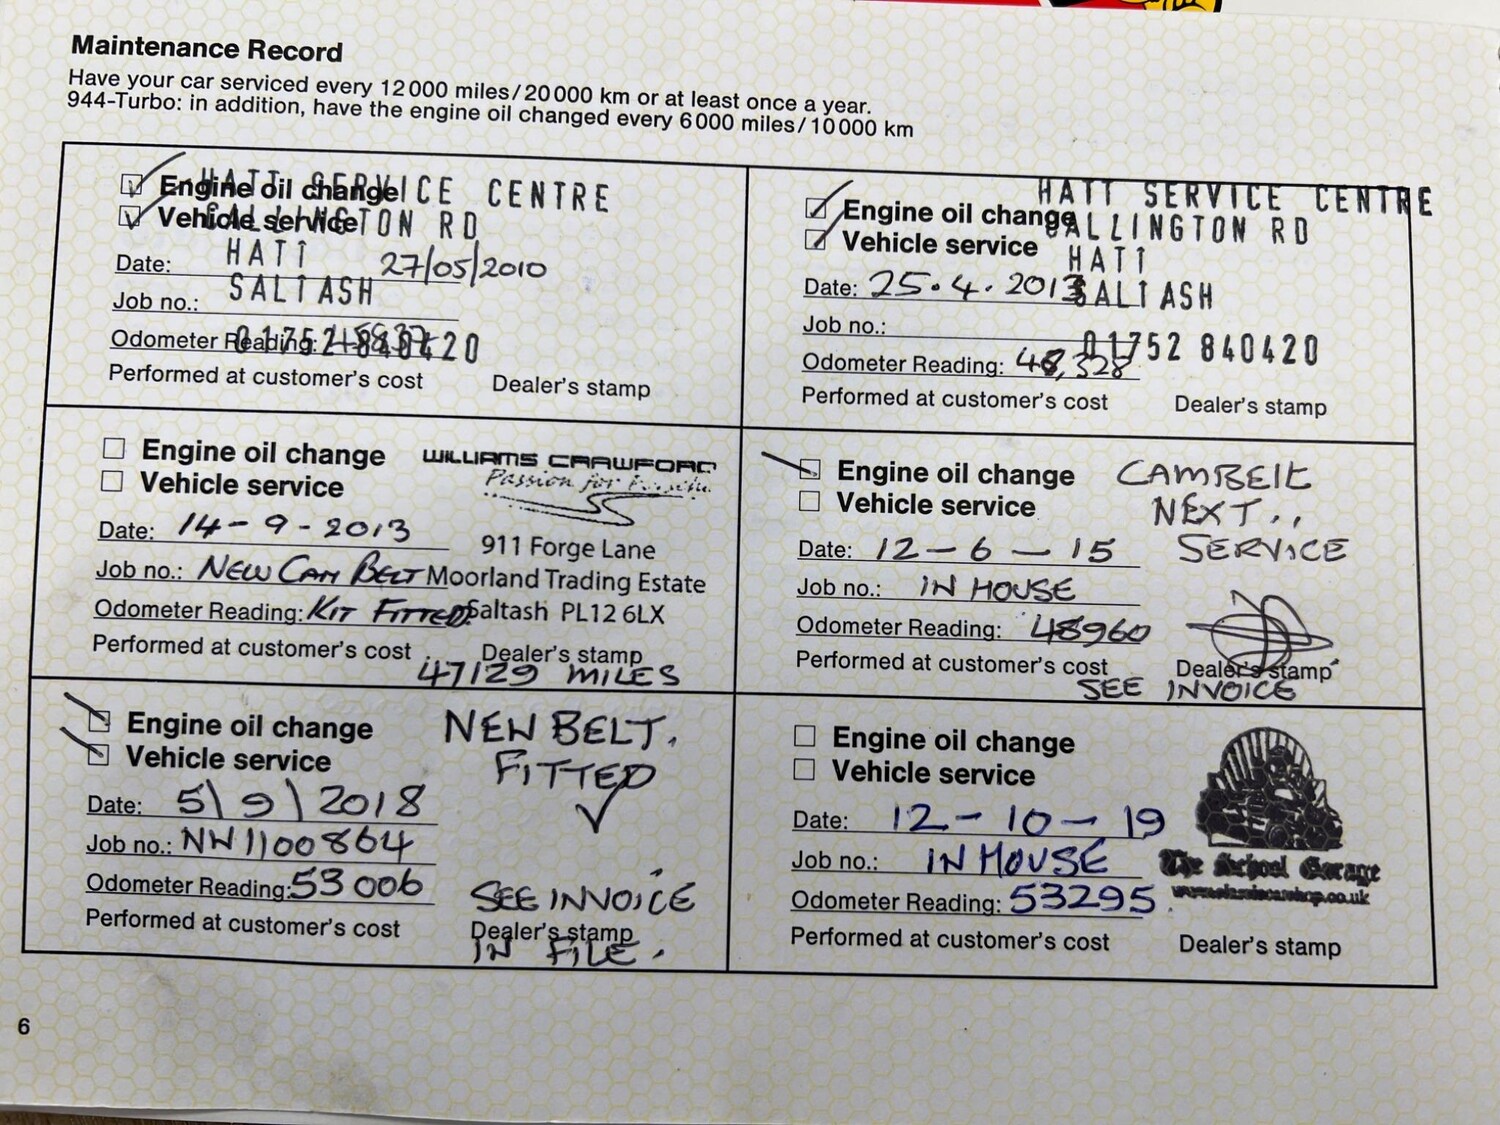 Maintenance Record
Have your car serviced every 12 000 miles/20 000 km or at least once a year.
944-Turbo: in addition, have the engine oil changed every 6 000 miles/10 000 km
Engine oil change
Vehicle service
HATT SERVICE CENTRE
CALLINGTON RD
HATT
SALTASH
01752 840420
Date: 27/05/2010
Job no.:
Odometer Reading:
Performed at customer's cost
Dealer's stamp
Engine oil change
Vehicle service
HATT SERVICE CENTRE
CALLINGTON RD
HATT
SALTASH
01752 840420
Date: 25.4.2013
Job no.:
Odometer Reading: 48,328
Performed at customer's cost
Dealer's stamp
Engine oil change
Vehicle service
WILLIAMS CRAWFORD
Passion for Porsche
911 Forge Lane
Moorland Trading Estate
Saltash PL12 6LX
Date: 14-9-2013
Job no.: NEW CAM BELT
Odometer Reading: KIT FITTED
Performed at customer's cost
Dealer's stamp
47129 MILES
Engine oil change
Vehicle service
CAMBELT
NEXT..
SERVICE
Date: 12-6-15
Job no.: IN HOUSE
Odometer Reading: 48960
Performed at customer's cost
Dealer's stamp
SEE INVOICE
Engine oil change
Vehicle service
NEW BELT.
FITTED
Date: 5\9\2018
Job no.: NW1100864
Odometer Reading: 53006
Performed at customer's cost
SEE INVOICE
Dealer's stamp
IN FILE.
Engine oil change
Vehicle service
Date: 12-10-19
Job no.: IN HOUSE
Odometer Reading: 53295
The School Garage
Performed at customer's cost
Dealer's stamp
6